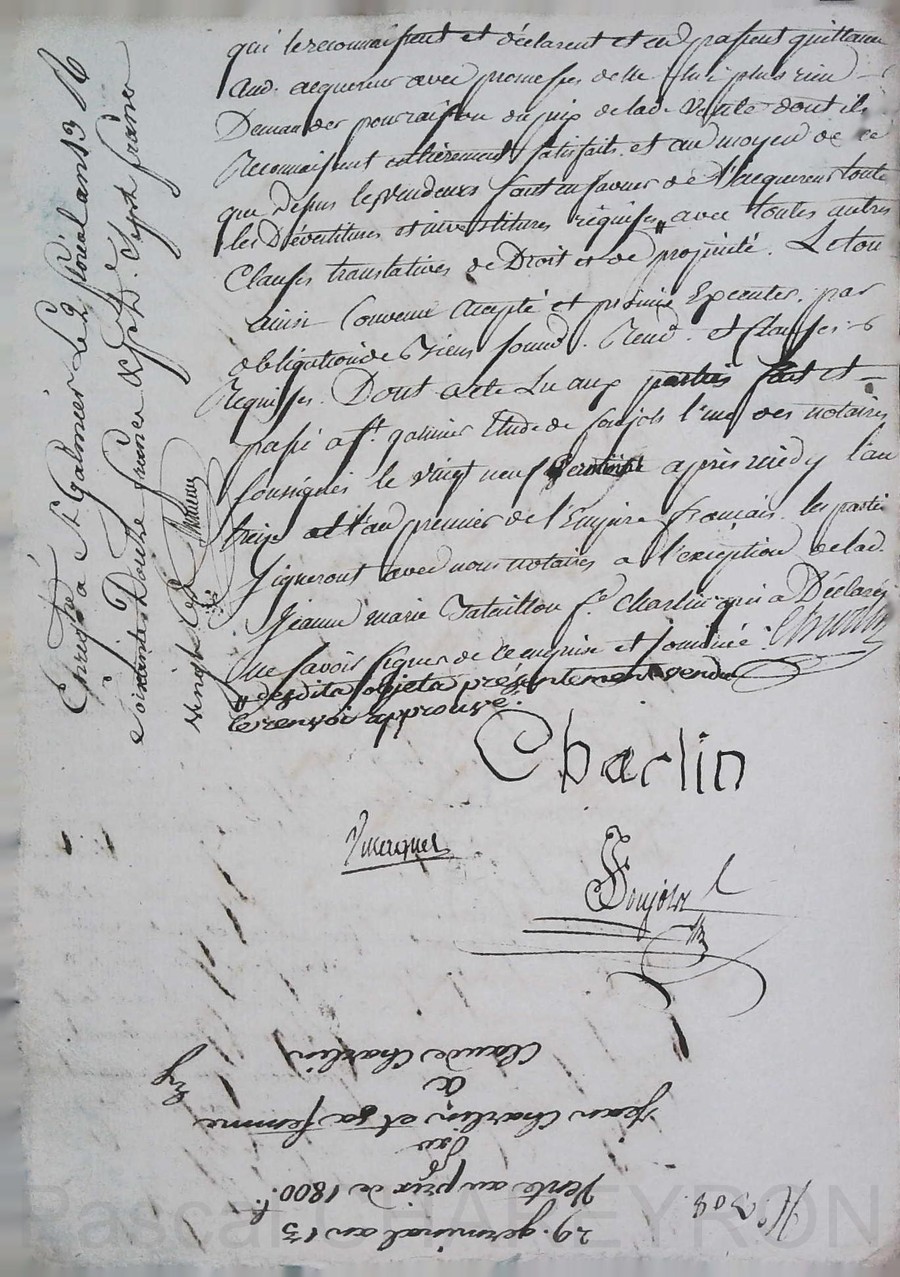 qui le reconnaissent et déclarent et en passent quittance
aud. acquereur avec promesse de ne lui plus rien
Demander pour raison du prix de lad. Vente dont ils
Reconnaissent entièrement satisfaits. et au moyen de ce
que Dessus les vendeurs font en faveur de l'acquereur toutes
les Dévestitures et investitures requises avec toutes autres
Clauses translatives de Droit et de propriété. Le tou
ainsi Convenu accepté et promis Executer. par
obligation de Biens soumd. Renod. et Clauses
Requises. Dont acte Lu aux parties fait et
passé a St. galmier Etude de Soujols l'un des notaires
soussignés le vingt neuf Germinal après midy l'an
treize et l'an premier de l'Empire français. les parties
signeront avec nous notaires a l'exception de lad.
Jeanne marie Tataillon fe. Charlin qui a Déclaré
Ne savoir signer de ce enquise et sommée. Charlin
" desdits objets présentement vendus
le renvoi approuvé.
Charlin
Soujols
Enregtré a St Galmier Le 2 floréal an 13
soixante Douze francs
Sept francs
29. germinal an 13
Vente au prix de 1800. f.
Par
Jean Charlin et sa femme
a
Claude Charlin
No. 308.
Pascal CHAREYRON